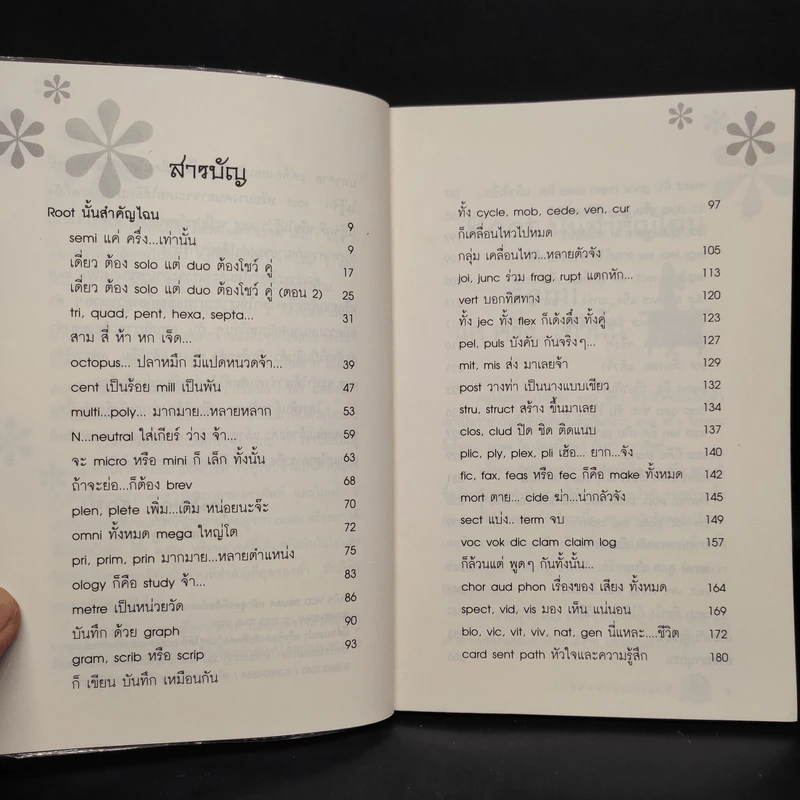 สารบัญ
Root นั้นสำคัญไฉน 9
semi แค่ ครึ่ง...เท่านั้น 9
เดี่ยว ต้อง solo แต่ duo ต้องโชว์ คู่ 17
เดี่ยว ต้อง solo แต่ duo ต้องโชว์ คู่ (ตอน 2) 25
tri, quad, pent, hexa, septa... 31
สาม สี่ ห้า หก เจ็ด...
octopus... ปลาหมึก มีแปดหนวดจ้า... 39
cent เป็นร้อย mill เป็นพัน 47
multi...poly... มากมาย...หลายหลาก 53
N...neutral ใส่เกียร์ ว่าง จ้า... 59
จะ micro หรือ mini ก็ เล็ก ทั้งนั้น 63
ถ้าจะย่อ...ก็ต้อง brev 68
plen, plete เพิ่ม...เติม หน่อยนะจ๊ะ 70
omni ทั้งหมด mega ใหญ่โต 72
pri, prim, prin มากมาย...หลายตำแหน่ง 75
ology ก็คือ study จ้า... 83
metre เป็นหน่วยวัด 86
บันทึก ด้วย graph 90
gram, scrib หรือ scrip 93
ก็ เขียน บันทึก เหมือนกัน
ทั้ง cycle, mob, cede, ven, cur 97
ก็เคลื่อนไหวไปหมด
กลุ่ม เคลื่อนไหว...หลายตัวจัง 105
joi, junc ร่วม frag, rupt แตกหัก... 113
vert บอกทิศทาง 120
ทั้ง jec ทั้ง flex ก็เด้งดึ๋ง ทั้งคู่ 123
pel, puls บังคับ กันจริงๆ... 127
mit, mis ส่ง มาเลยจ้า 129
post วางท่า เป็นนางแบบเชียว 132
stru, struct สร้าง ขึ้นมาเลย 134
clos, clud ปิด ชิด ติดแนบ 137
plic, ply, plex, pli เฮ้อ... ยาก...จัง 140
fic, fax, feas หรือ fec ก็คือ make ทั้งหมด 142
mort ตาย... cide ฆ่า...น่ากลัวจัง 145
sect แบ่ง.. term จบ 149
voc vok dic clam claim log 157
ก็ล้วนแต่ พูดๆ กันทั้งนั้น...
chor aud phon เรื่องของ เสียง ทั้งหมด 164
spect, vid, vis มอง เห็น แน่นอน 169
bio, vic, vit, viv, nat, gen นี่แหละ....ชีวิต 172
card sent path หัวใจและความรู้สึก 180